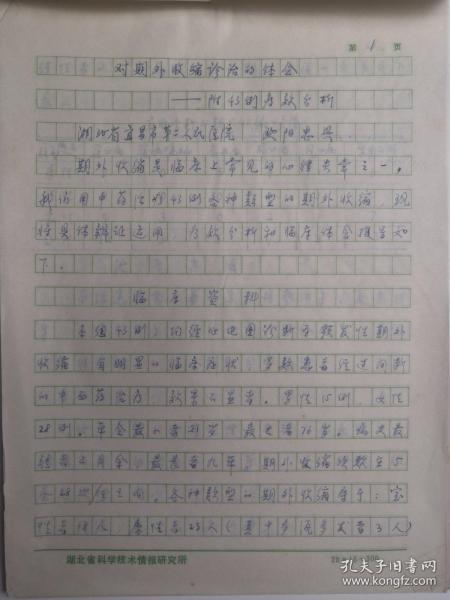 第 1 页
对期外收缩诊治的体会
——附43例疗效分析
湖北省宜昌市第二人民医院 欧阳忠
期外收缩是临床上常见的心律失常之一。
我们用中药治疗43例各种类型的期外收缩，现
将具体辨证运用、疗效分析和临床体会报告如
下。
临床资料
本组43例，均经心电图诊断为频发性期外
收缩，有明显的临床症状，多数患者经过
的中西药治疗，效果不显著。男性15例，女性
28例。年龄最小者 岁，最大者76岁。病史最
短者 月余，最长者九年。期外收缩次数在
28次 之间，各种类型的期外收缩 ：室
性者18人，房性者23人（其中多 者3人）
湖北省科学技术情报研究所
孔夫子旧书网
kongfz.com